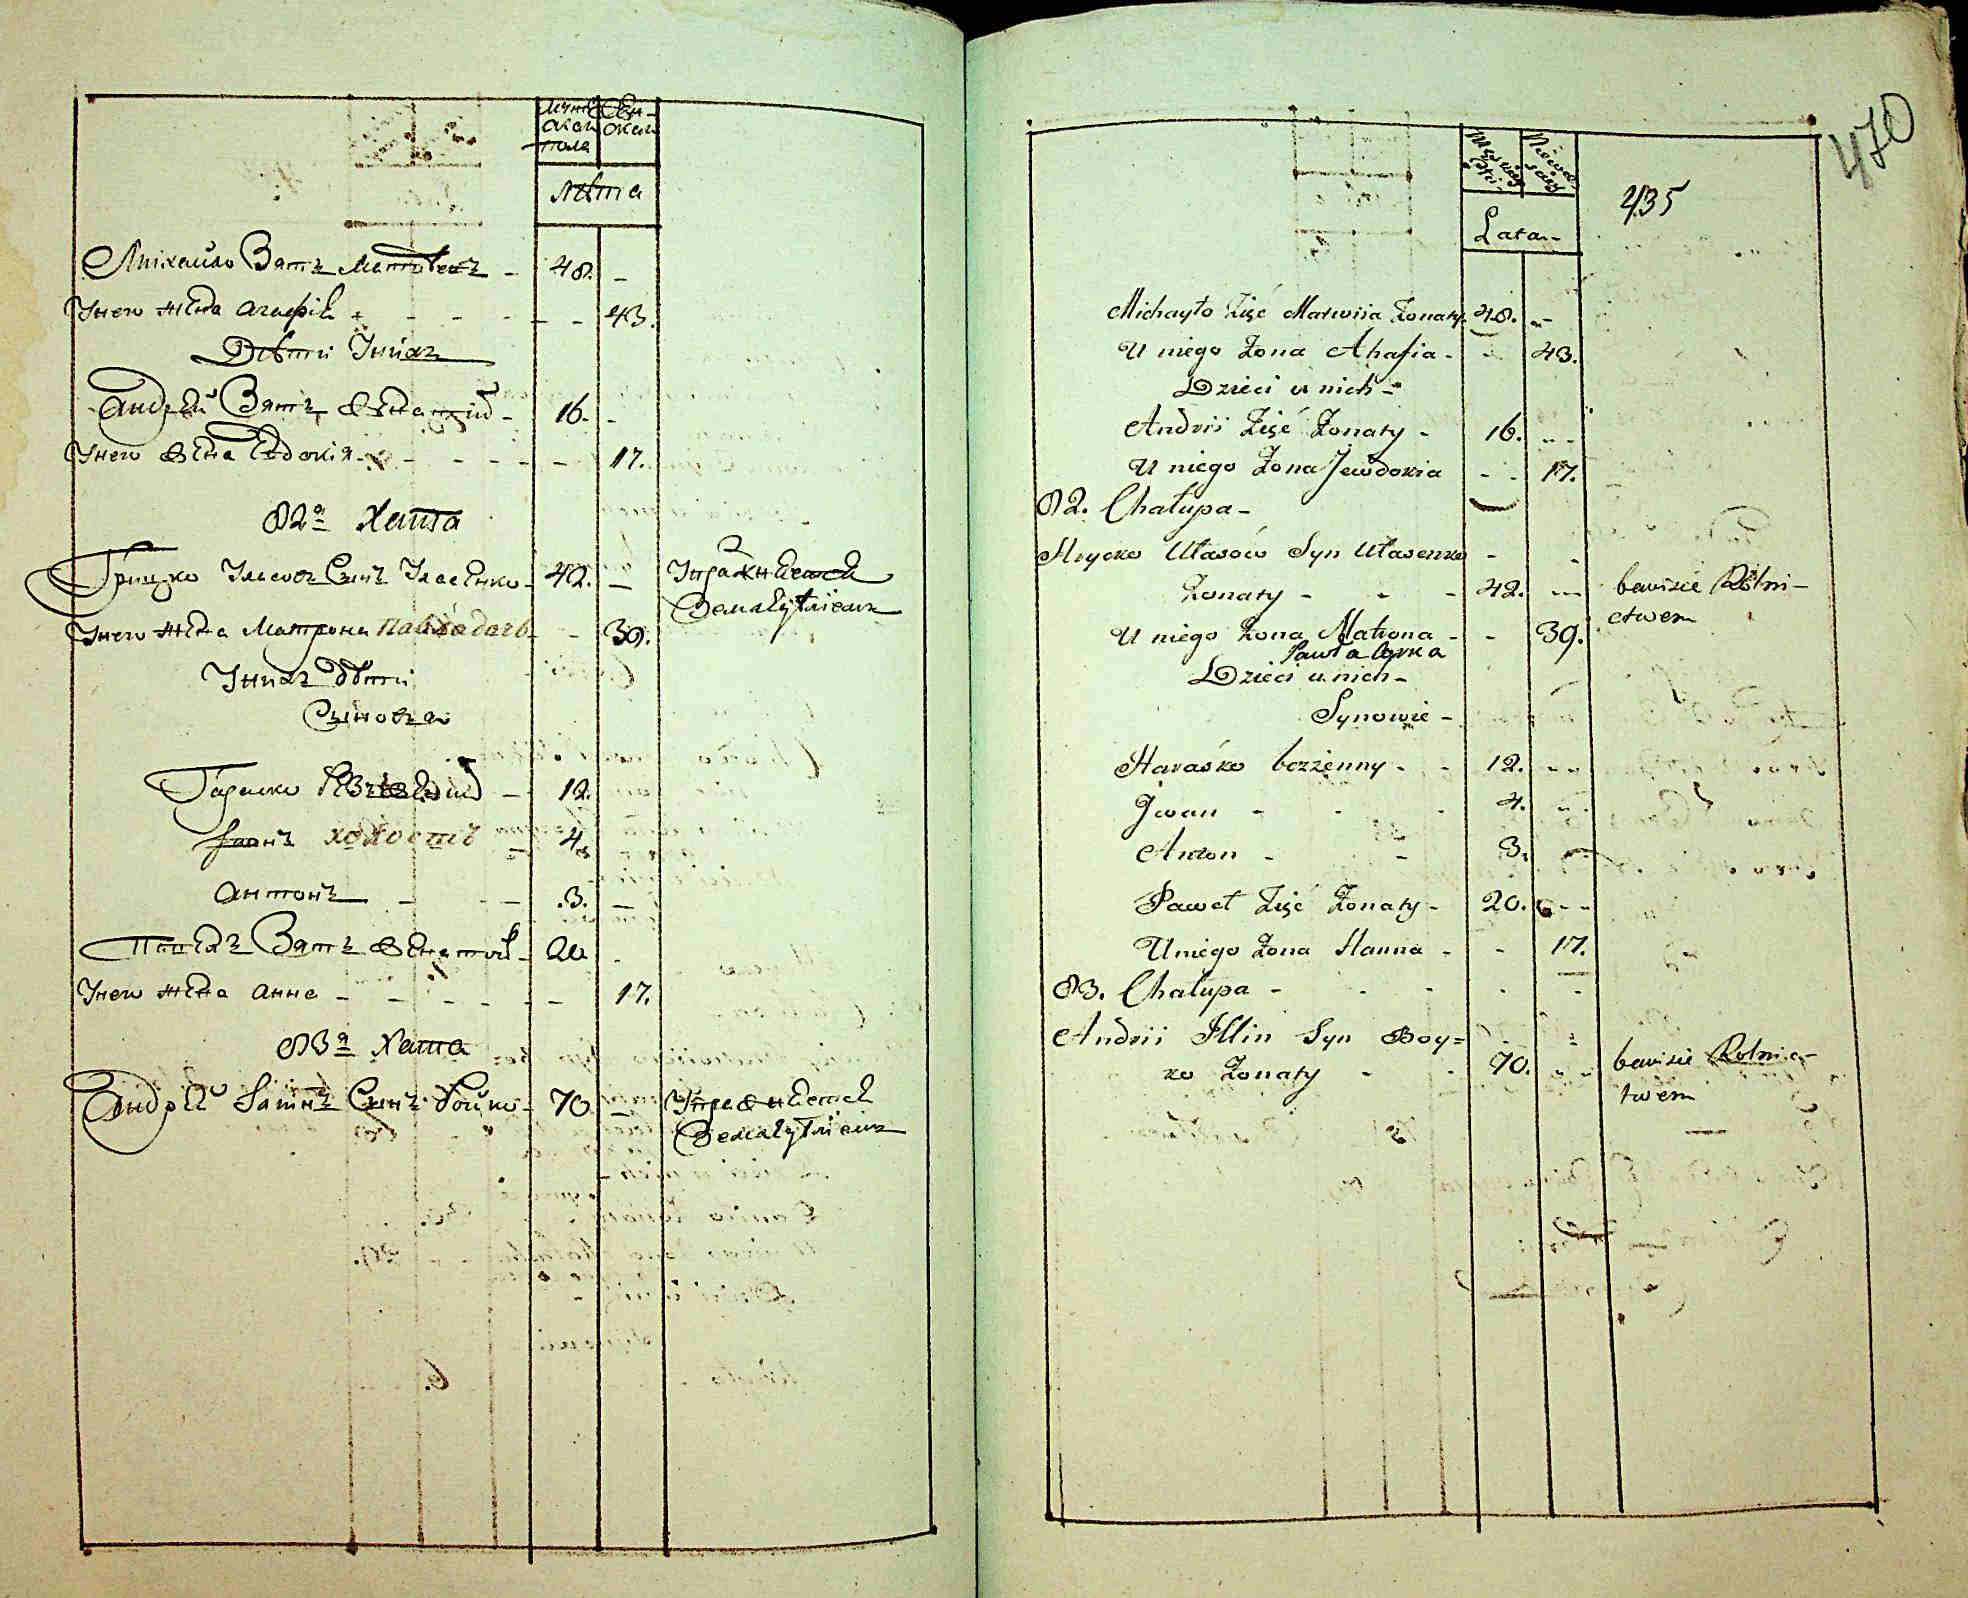 Лѣта
Михайло Зять Матвеевъ - 48. -
У него жена Агафія - 43.
Дѣти у нихъ
Андрей Зять женатий - 16. -
У него жена Евдокія - 17.
82а Хата
Грицко Уласовъ Синъ Уласенко - 42. - Упражняется
Земледѣліемъ
У него жена Матрона Павлова дочь - 39.
У нихъ дѣти
Сыновья
Гараско 12.
Іванъ холостъ - 4.
Антонъ - 3. -
Павелъ Зять женатой - 20 -
У него жена Анна - 17.
83а Хата
Андрей Синъ Бойко - 70 - Упражняется
Земледѣліемъ
470
435
Lata
Michayło Zięć Matwiia Żonaty 48. -
U niego Żona Ahafia - 43.
Dzieci u nich -
Andrii Zięć Żonaty - 16. -
U niego Żona Jewdokia - 17.
82. Chałupa -
Hrycko Ułasów Syn Ułasenko -
Żonaty - 42. - bawi sie Rolni-
ctwem
U niego Żona Matrona - 39.
Pawła Corka
Dzieci u nich -
Synowie -
Harasko bezżenny - 12. -
Jwan - 4. -
Anton - 3. -
Paweł Zięć Żonaty - 20. -
U niego Żona Hanna - 17.
83. Chałupa -
Andrii Illin Syn Boy=
ko Żonaty - 70. - bawi sie Rolnic-
twem